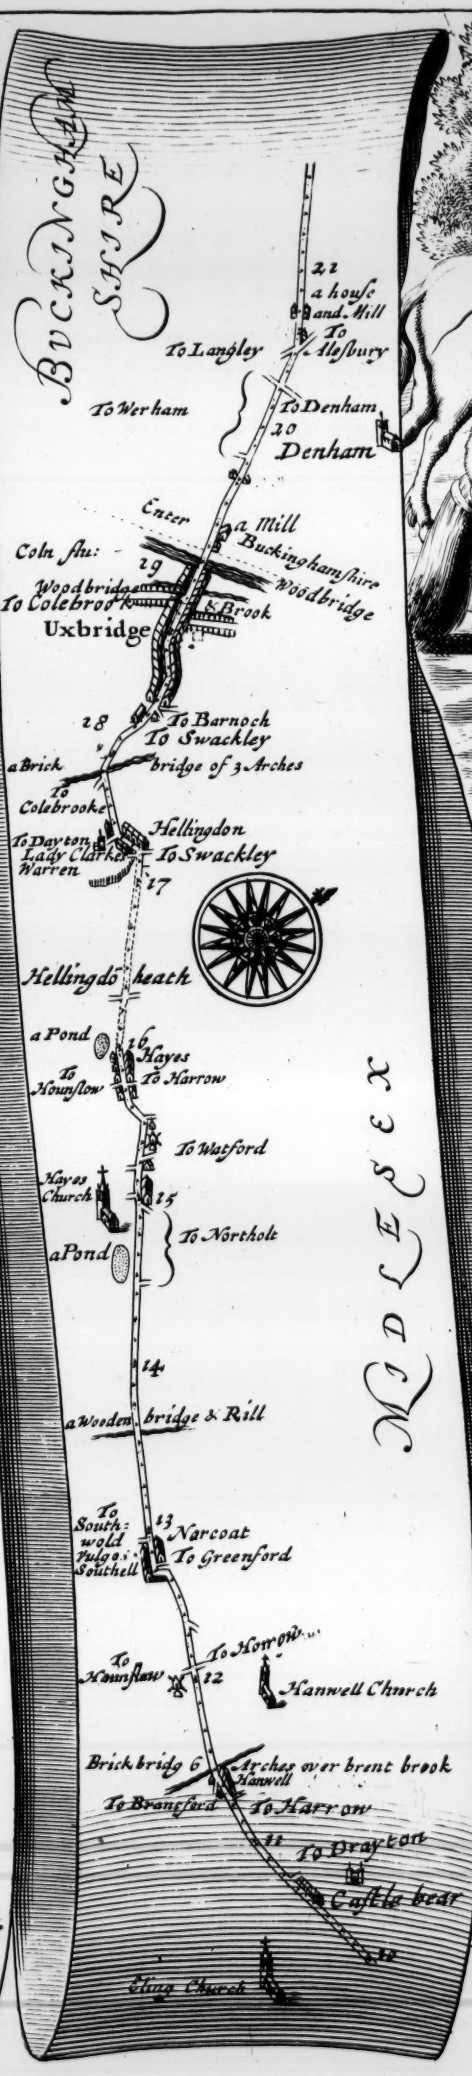 BVCKINGHAM
SHIRE
21
a house
and Mill
To
Alesbury
To Langley
To Werham
To Denham
20
Denham
Enter
a Mill
Buckinghamshire
Coln flu:
19
Woodbridge
Woodbridge
To Colebrook
& Brook
Uxbridge
18
To Barnoch
To Swackley
a Brick bridge of 3 Arches
To
Colebrooke
Hellingdon
To Dayton
Lady Clarkes
Warren
To Swackley
17
Hellingdō heath
a Pond
16
Hayes
To
Hounslow
To Harrow
To Watford
Hayes
Church
15
To Northolt
a Pond
MIDLESEX
14
a Wooden bridge & Rill
13
To
South=
wold
vulgo
Southell
Narcoat
To Greenford
To Horrow
To
Hounslow
12
Hanwell Church
Brickbridg 6 Arches over brent brook
Hanwell
To Brantford
To Harrow
11
To Drayton
Castle bear
10
Eling Church